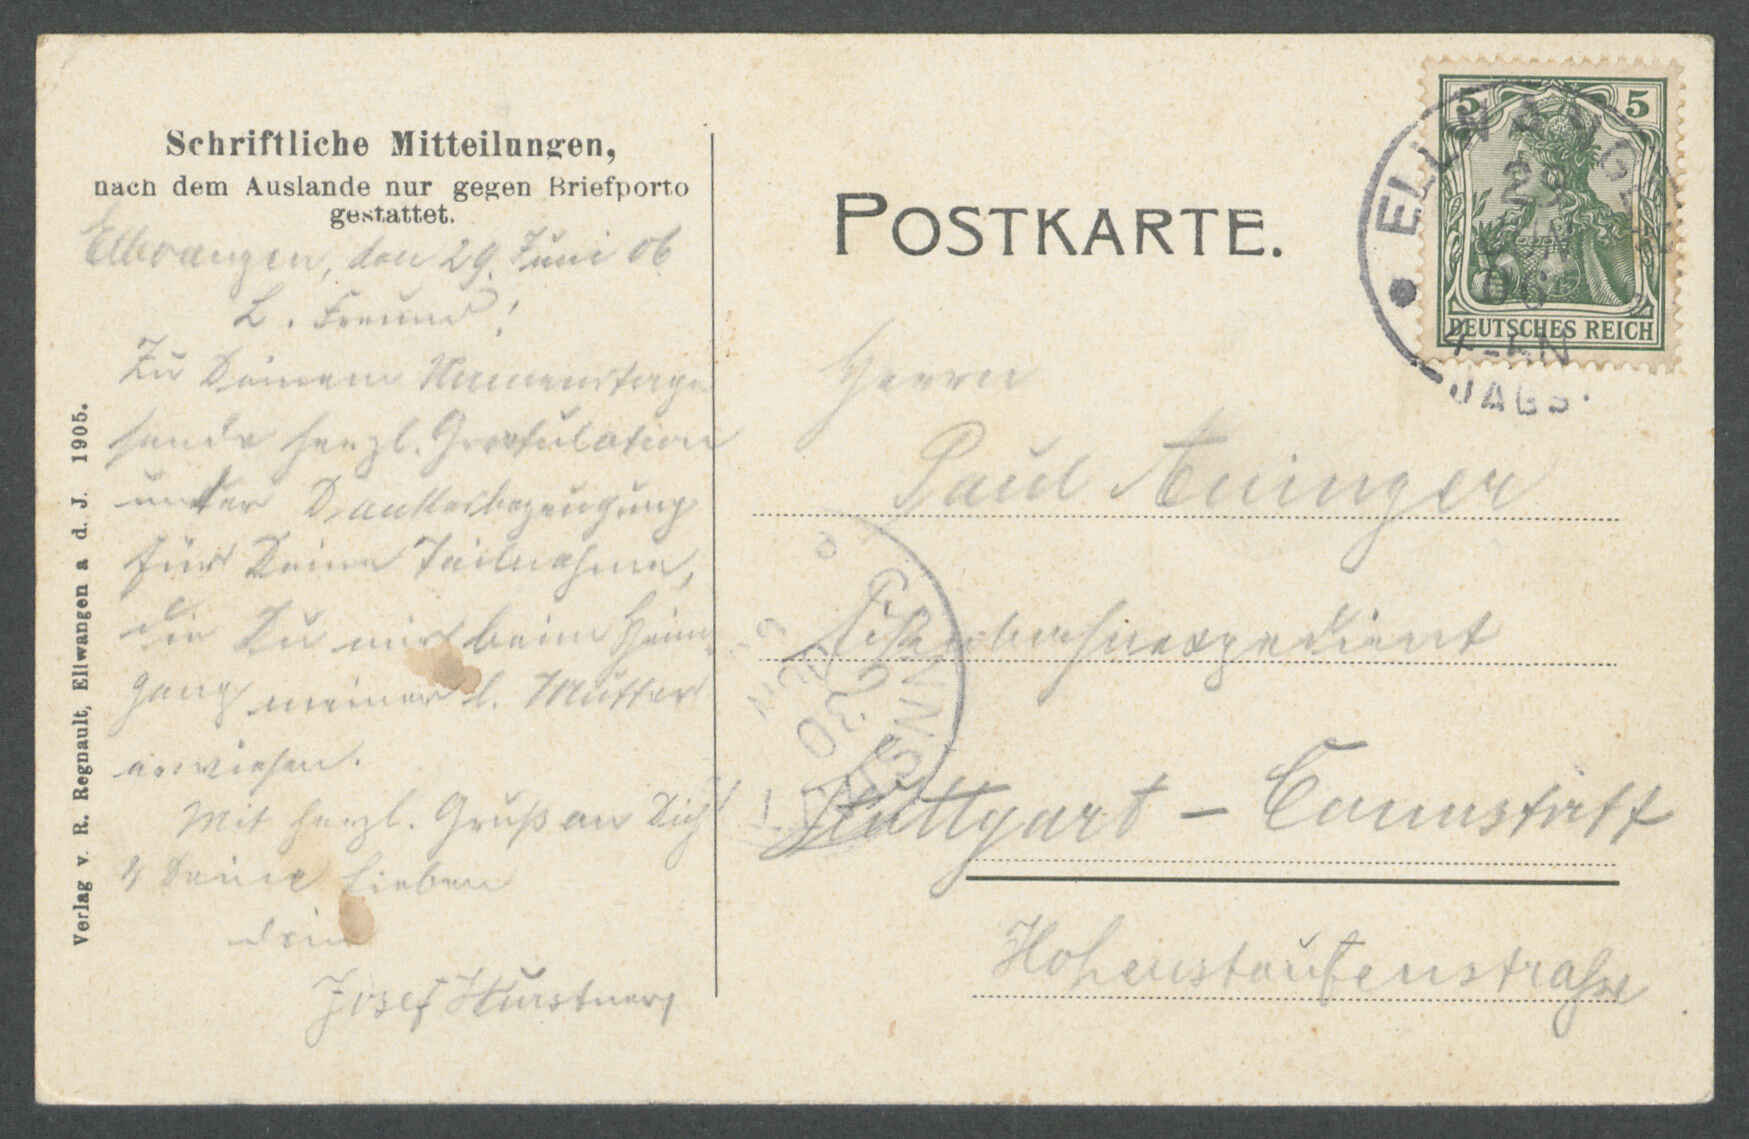 Schriftliche Mitteilungen,
nach dem Auslande nur gegen Briefporto
gestattet.
Ellwangen, den 29. Juni 06
L. Freund!
Zu Deinem Namenstage
sende herzl. Gratulation
unter Dankesbezeugung
für Deine Teilnahme,
die Du mir beim Heim-
gang meiner l. Mutter
erwiesen.
Mit herzl. Gruß an Dich
& Deine Lieben
dein
Josef
Verlag v. R. Regnault, Ellwangen a d. J. 1905.
POSTKARTE.
5 5
DEUTSCHES REICH
ELLWANGEN
JAGS
Herrn
Paul Aninger
Eisenbahnexpedient
Stuttgart - Cannstatt
Hohenstaufenstraße